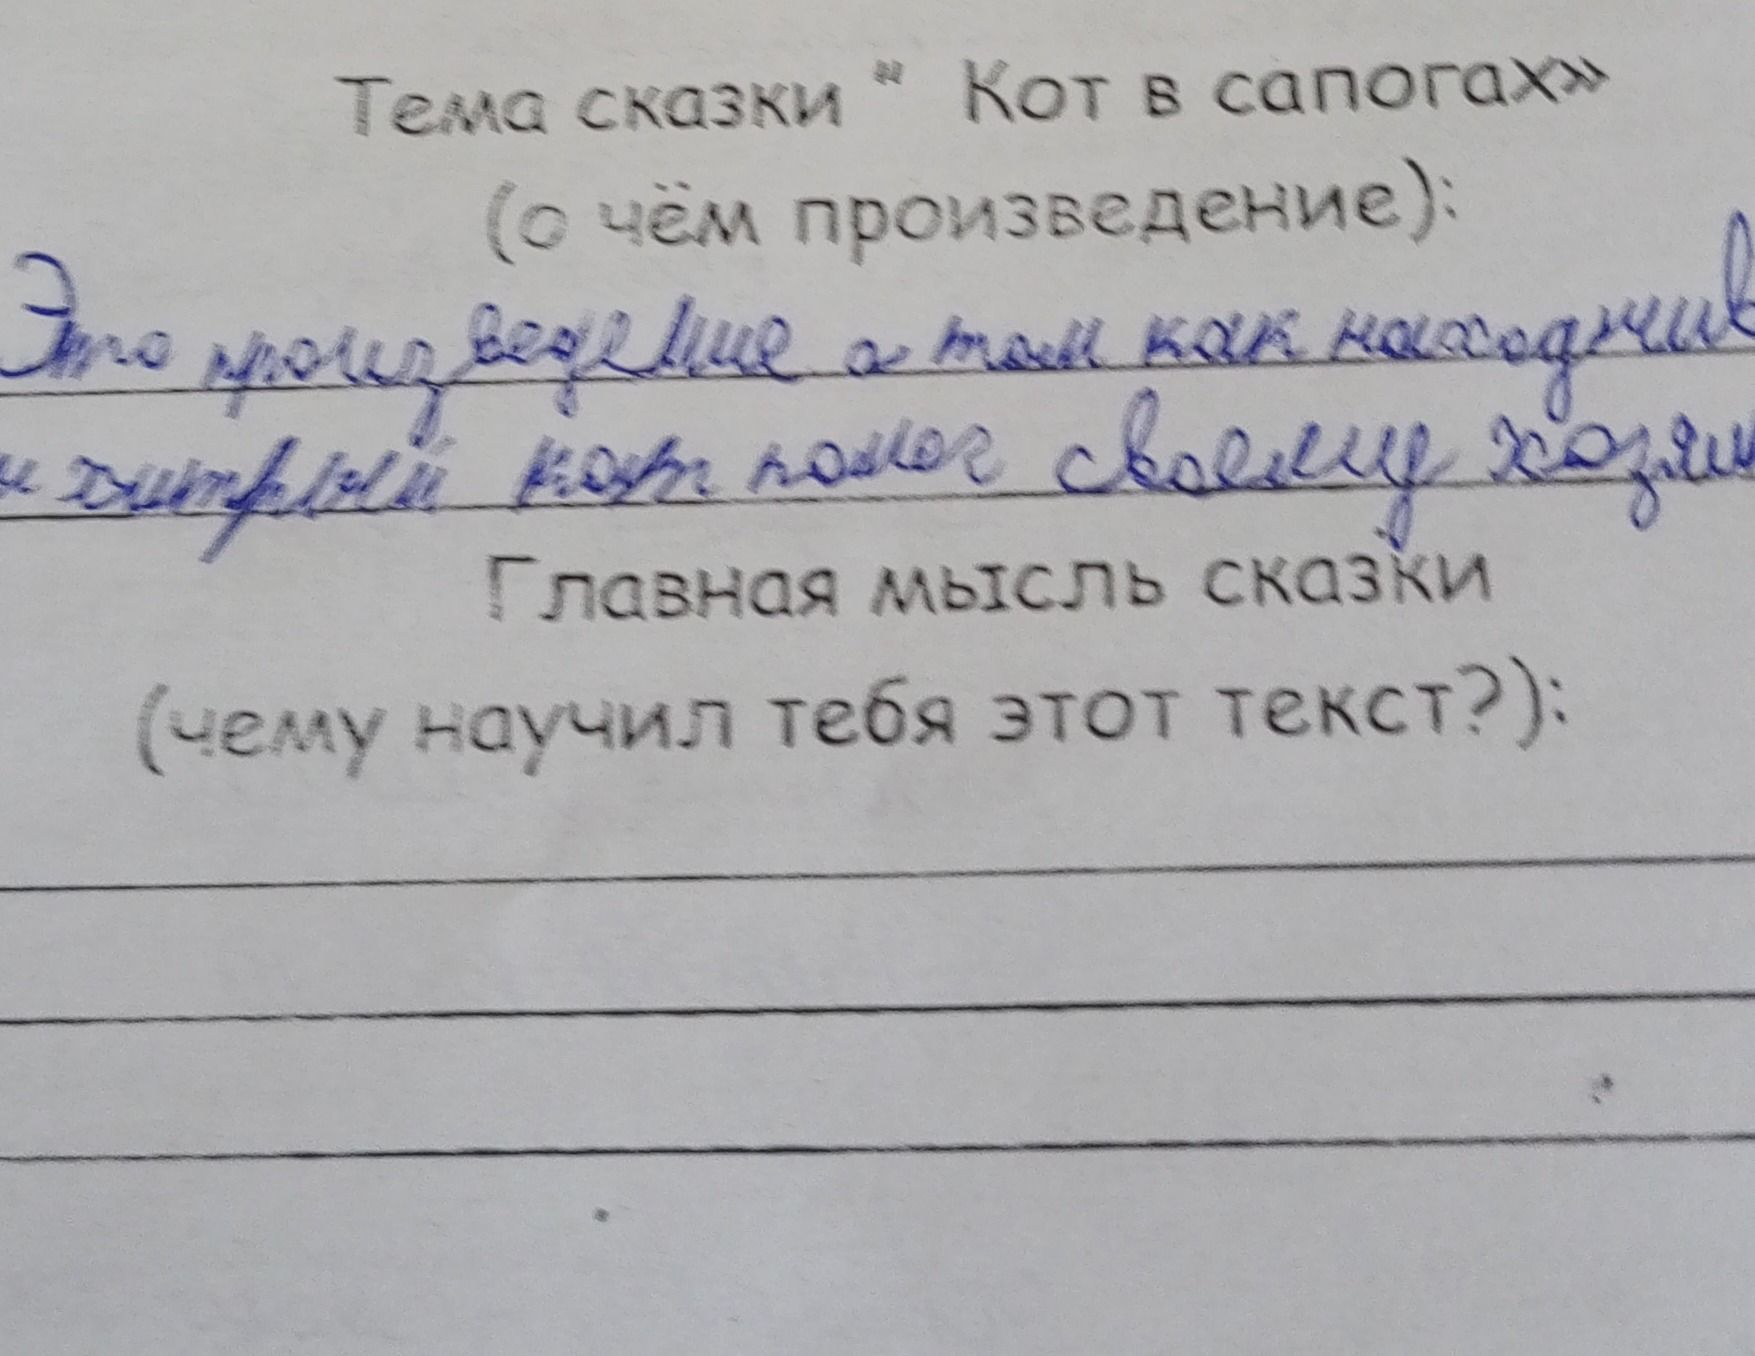 Тема сказки “ Кот в сапогах»
(о чём произведение):
Это произведение о том как находчив
и хитрый кот помог своему хозяи
Главная мысль сказки
(чему научил тебя этот текст?):